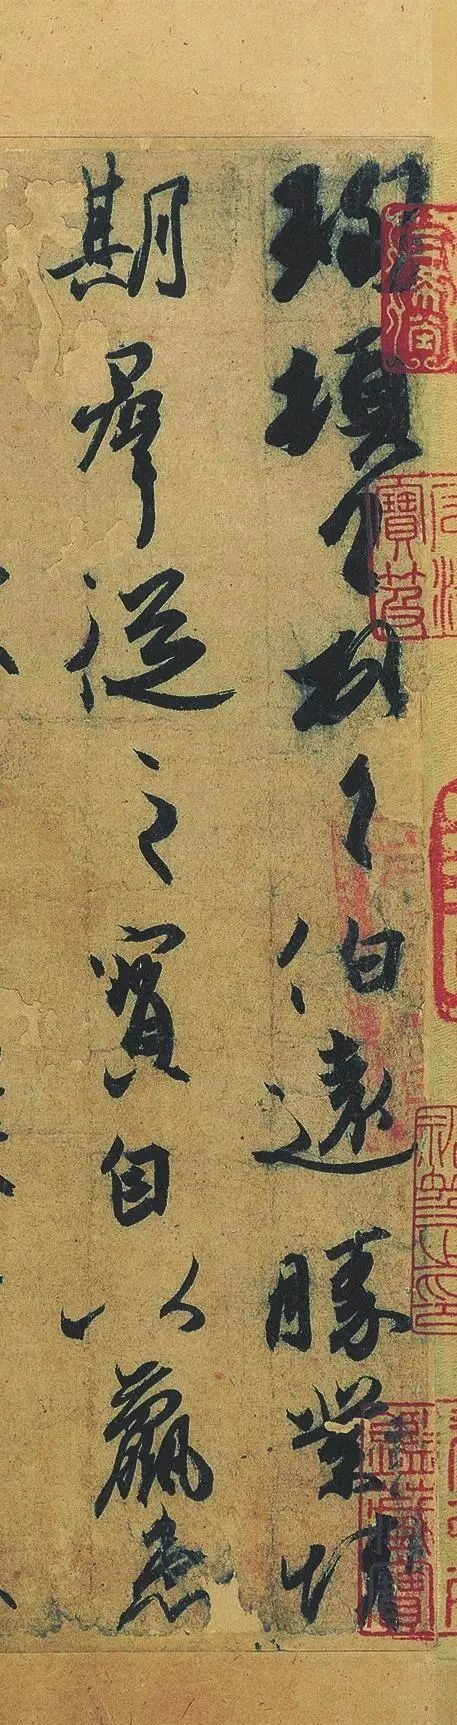 珣頓首頓首伯遠勝業情
期群從之寶自以羸患